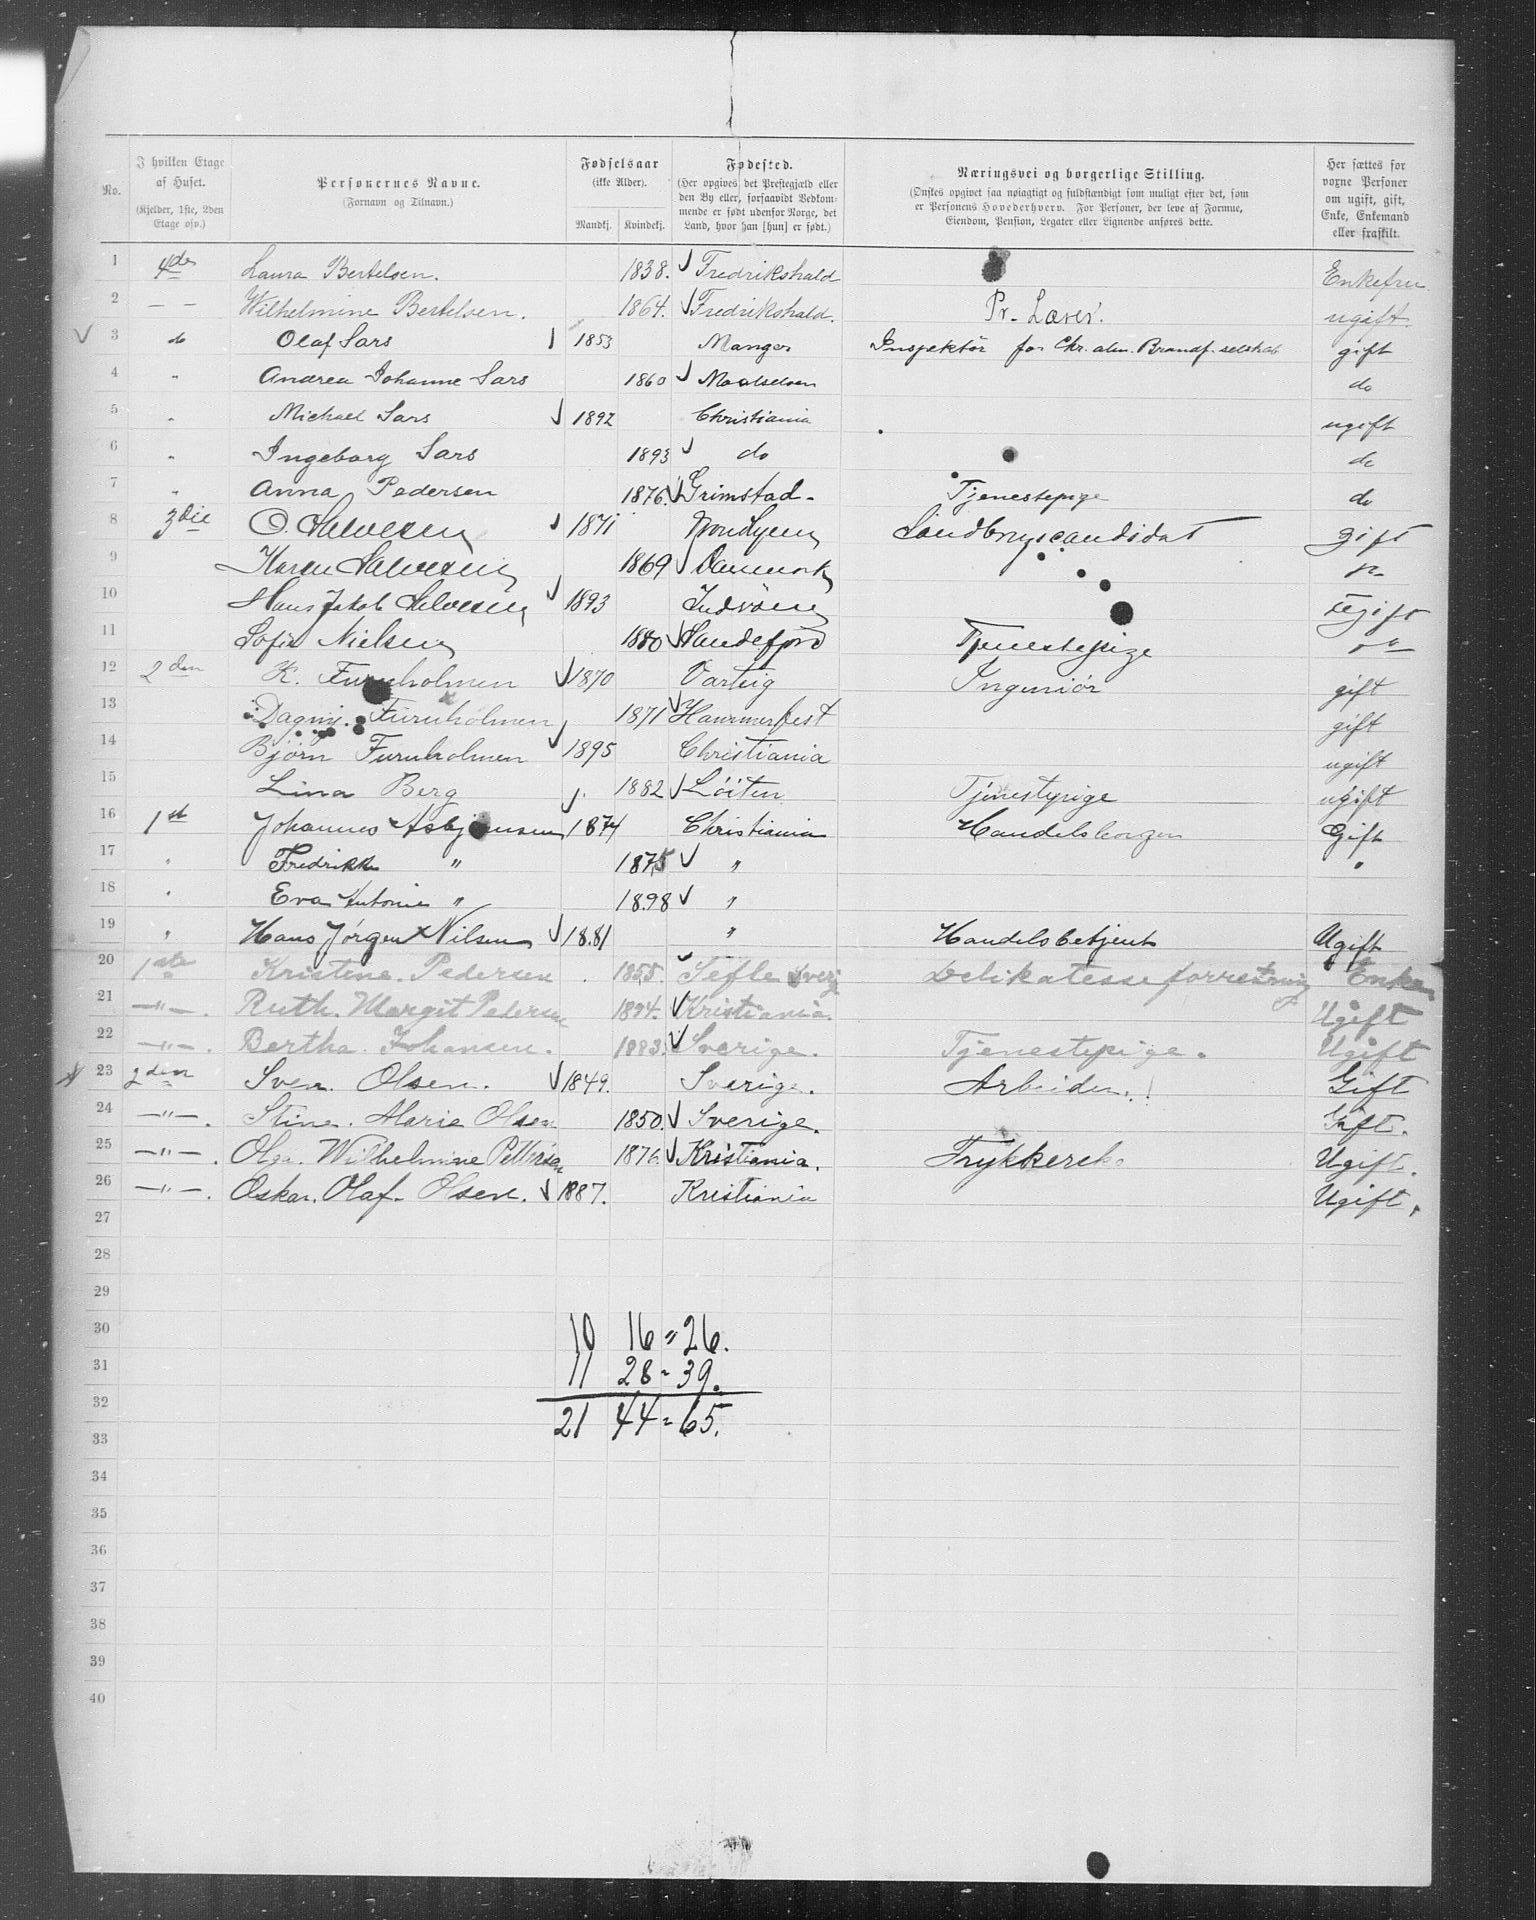 No.
I hvilken Etage af Huset. (Kjelder, 1ste, 2den Etage osv.)
Personernes Navne. (Fornavn og Tilnavn.)
Fødselsaar (ikke Alder).
Mandkj. Kvindekj.
Fødested. (Her opgives det Prestegjæld eller den By eller, forsaavidt Vedkommende er født udenfor Norge, det Land, hvor han [hun] er født.)
Næringsvei og borgerlige Stilling. (Ønskes opgivet saa nøiagtigt og fuldstændigt som muligt efter det, som er Personens Hovederhverv. For Personer, der leve af Formue, Eiendom, Pension, Legater eller Lignende anføres dette.
Her sættes for voxne Personer om ugift, gift, Enke, Enkemand eller fraskilt.
1 4de Laura Bertelsen. 1838. Fredrikshald Enkefru
2 — — Wilhelmine Bertelsen. 1864. Fredrikshald. Pr. Lærer. ugift.
3 do Olaf Sars 1853 Manger Inspektör for Chr. alm. Brandf. selskab gift
4 " Andrea Johanne Sars 1860 Maalselven do
5 " Michael Sars 1892 Christiania ugift
6 " Ingeborg Sars 1893 do do
7 " Anna Pedersen 1876. Grimstad. Tjenestepige do
8 3die O. Salvesen 1871 Landbrugscandidat gift
9 Karen Salvesen 1869 Danmark
10 Hans Jakob Salvesen 1893 Inderöen Ugift
11 Sofie Nielsen 1880 Sandefjord Tjenestepige
12 2den K. Furuholmen 1870 Varteig Ingeniör gift
13 Dagny. Furuholmen 1871 Hammerfest gift
14 Bjørn Furuholmen 1895 Christiania ugift
15 Lina Berg 1882 Löiten Tjenestepige ugift
16 1st Johannes Asbjörnsen 1874 Christiania Handelsborger Gift
17 " Fredrikke " 1875 " "
18 " Eva Antonie " 1898 "
19 " Hans Jörgen Nilsen 1881 " Handelsbetjent Ugift
20 1ste Kristine. Pedersen 1855. Sverig Delikatesseforretning Enke
21 —"—. Ruth. Margit Pedersen 1894. Kristiania. Ugift
22 —"—. Bertha Johansen. 1883. Sverige. Tjenestepige. Ugift
23 2den Sven. Olsen. 1849. Sverige. Arbeider. Gift
24 —"—. Stine. Marie Olsen 1850. Sverige. Gift.
25 —"—. Olga. Wilhelmine Pettersen 1876. Kristiania. Trykkerske Ugift.
26 —"—. Oskar. Olaf. Olsen. 1887. Kristiania Ugift.
27
28
29
30 10 16 = 26.
31 11 28 = 39.
32 21 44 = 65.
33
34
35
36
37
38
39
40